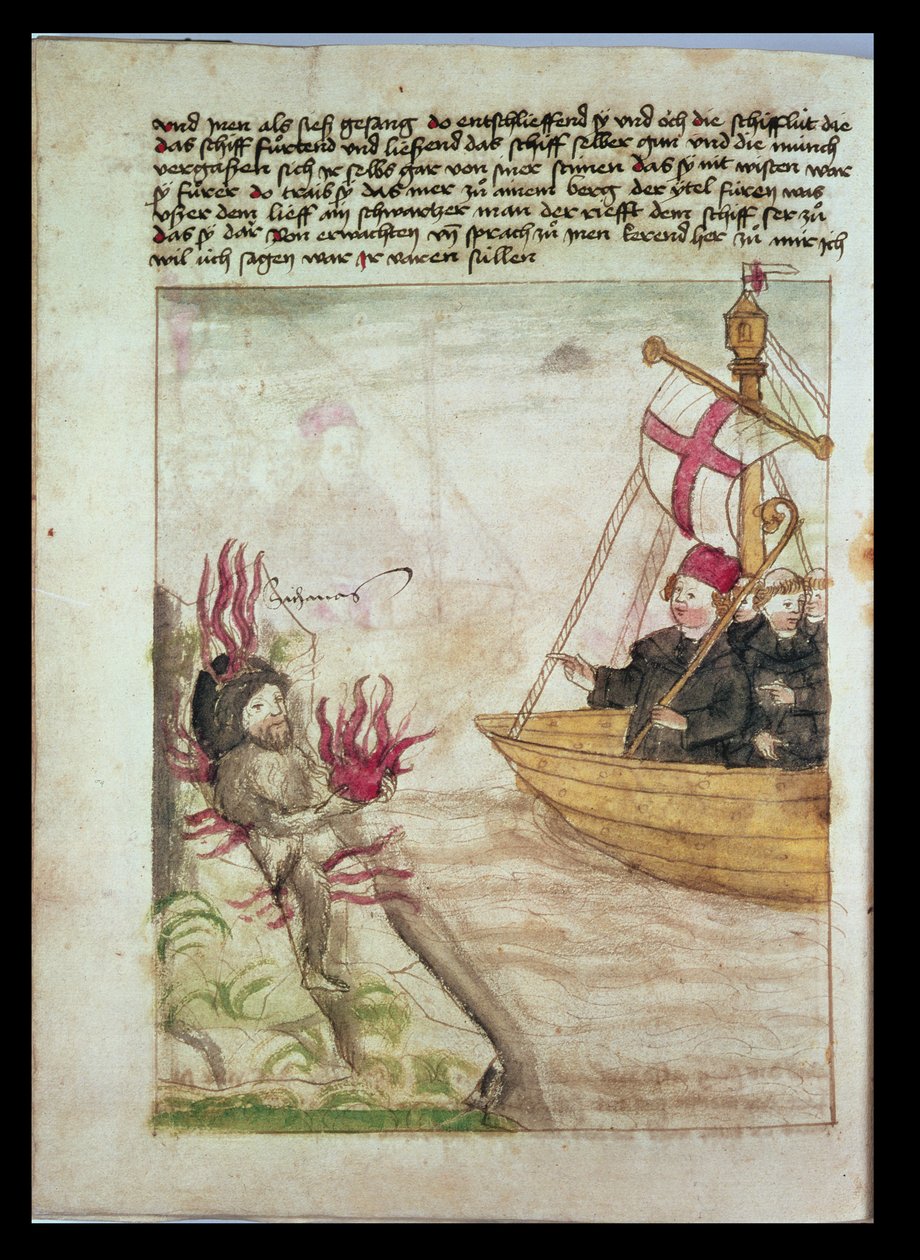 vnd jnen als sieß gesang do entschlieffend sÿ vnd och die schifflüt die
das schiff fůrtend vnd ließend das schiff selber gan vnd die münch
vergaßen sich jr selbs gar von jner stimen das sÿ nit wisten war
sÿ fůrer do traib sÿ das mer zů ainem berg der ÿtel füren was
vßer dem lieff ain schwartzer man der riefft dem schiff ser zů
das sÿ dar von erwachten vn̄ sprach zů jnen kerend her zů mir ich
wil üch sagen war jr varen süllen